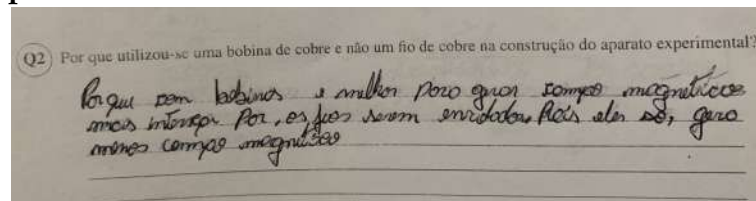 Q2) Por que utilizou-se uma bobina de cobre e não um fio de cobre na construção do aparato experimental?
Porque com bobinas é melhor para gerar campos magnéticos
mais intensos. Por, os fios serem enrolados, Pois eles só, gera
menos campo magnético